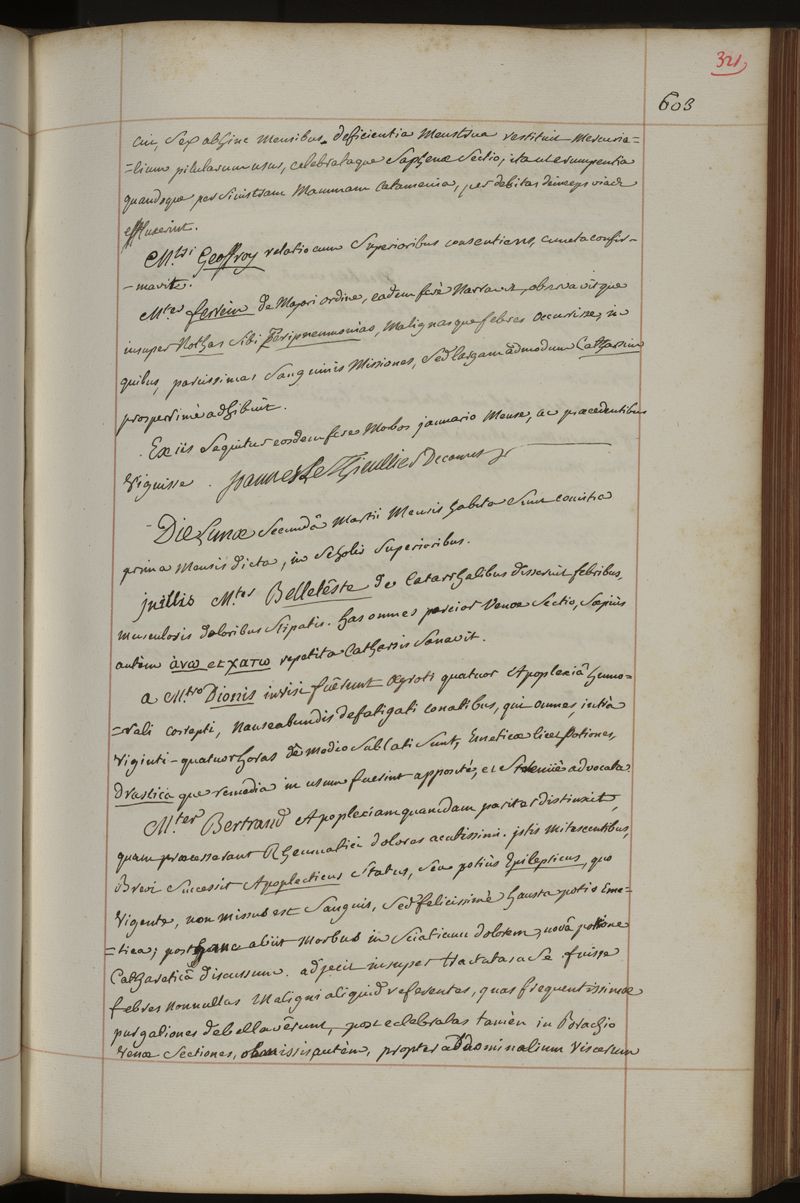 321
603
cui, Sex abhinc mensibus, deficientia Menstrua restituit Mercuria=
=lium pilularum usus, celebrataque Saphenæ Sectio, ita ut erumpentia
quandoque per sinistram Mammam Catamenia, per debitas deinceps vias
effluxerint.
M.tri Geoffroy relatio cum Superioribus consentiens, cuncta confir-
-mavit.
M.ter ferrein de Majori ordine, eadem ferè Narravit, observavitque
insuper Nothas sibi Peripneumonias, Malignasque febres occurisse, in
quibus, parcissimas Sanguinis Missiones, Sed largam admodum Catharsim
prosperrimè adhibuit.
Ex iis Sequitur eosdem fere Morbos januario Mense, ac præcedentibus
Viguisse. Joannes Le Thieullier Decanus
Die Lunæ Secundâ Martii Mensis habita Sunt comitia
prima Mensis dicta, in Scholis Superioribus.
jn illis M.ter Belletêste de Catarrhalibus disseruit febribus,
musculosis doloribus Stipatis. has omnes parcior Venæ Sectio, Sæpius
autèm ἀνω et χατω repetita Catharsis Sanavit.
a M.tro Dionis invisi fuêrunt Ægroti quatuor Apoplexiâ humo=
=rali correpti, Nauseabundis defatigati conatibus, qui omnes, intrà
Viginti-quatuor horas de medio Sublati Sunt, Emeticæ licet potiones,
Drastica que remedia in usum fuerint appositè, et Strenuè advocata
M.ter Bertrand Apoplexiam quamdam pariter distinxit,
quam præcesserant Rheumatici dolores acutissimi. jstis mitescentibus,
Brevi Successit Apoplecticus Status, Seu potiùs Epilepticus, quo
Vigente, non missus est Sanguis, Sed felicissimè hausta potio Eme-
=tica; post hanc abiit Morbus in Sciaticum dolorem, novâ potione
Catharticâ discussum. adjecit insuper tractatas a Se fuisse
febres nonnullas Maligni aliquid referentes, quas frequentissimæ
purgationes debellavêrunt, post celebratas tamèn in Brachio
Venæ Sectiones, omissis autèm, propter abdominalium Viscerum